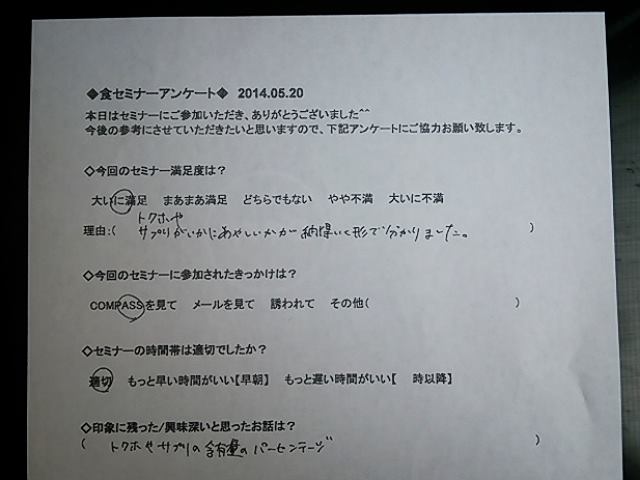 ◆食セミナーアンケート◆ 2014.05.20
本日はセミナーにご参加いただき、ありがとうございました^^
今後の参考にさせていただきたいと思いますので、下記アンケートにご協力お願い致します。
◇今回のセミナー満足度は？
大いに満足 まあまあ満足 どちらでもない やや不満 大いに不満
トクホや
理由:( サプリがいかにあやしいかが 納得いく形で分かりました。 )
◇今回のセミナーに参加されたきっかけは？
COMPASSを見て メールを見て 誘われて その他( )
◇セミナーの時間帯は適切でしたか？
適切 もっと早い時間がいい【早朝】 もっと遅い時間がいい【 時以降】
◇印象に残った/興味深いと思ったお話は？
( トクホやサプリの含有量のパーセンテージ )